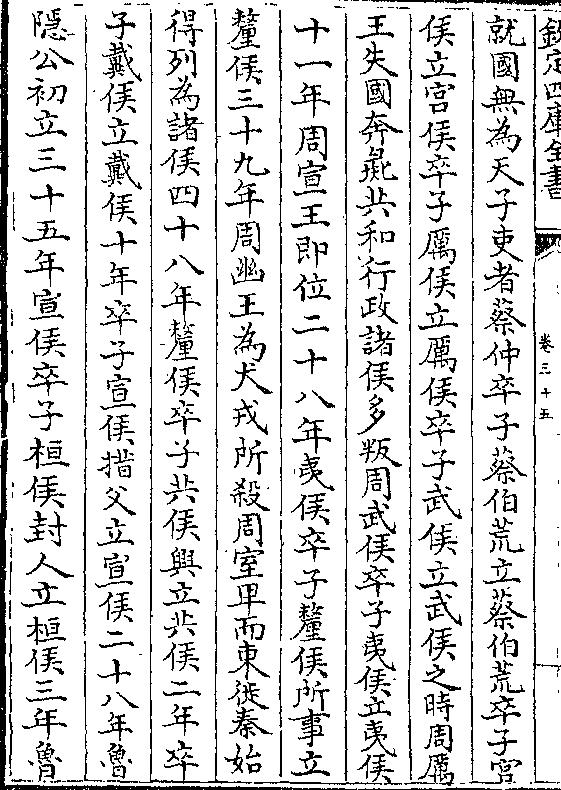 欽定四庫全書
卷三十五
就國無為天子吏者蔡仲卒子蔡伯荒立蔡伯荒卒子宮
侯立宮侯卒子厲侯立厲侯卒子武侯立武侯之時周厲
王失國奔彘共和行政諸侯多叛周武侯卒子夷侯立夷侯
十一年周宣王即位二十八年夷侯卒子釐侯所事立
釐侯三十九年周幽王為犬戎所殺周室卑而東徙秦始
得列為諸侯四十八年釐侯卒子共侯興立共侯二年卒
子戴侯立戴侯十年卒子宣侯措父立宣侯二十八年魯
隱公初立三十五年宣侯卒子桓侯封人立桓侯三年魯